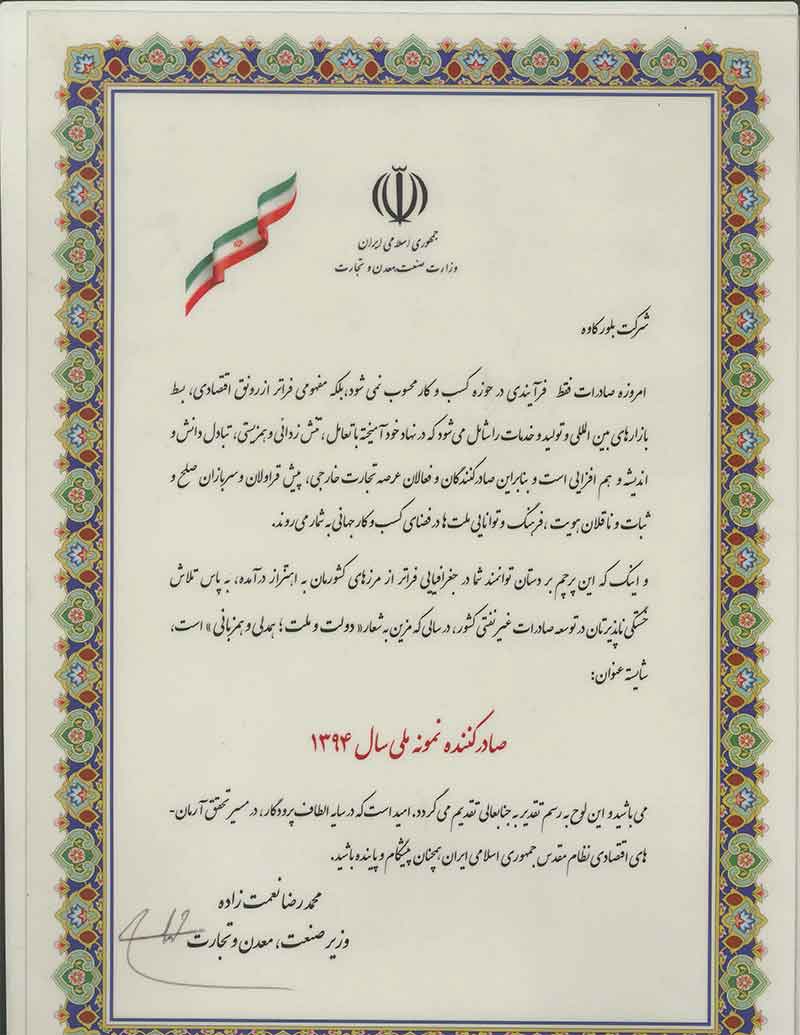 جمهوری اسلامی ایران
وزارت صنعت، معدن و تجارت
شرکت بلور کاوه
امروزه صادرات فقط فرآیندی در حوزه کسب و کار محسوب نمی شود، بلکه مفهومی فراتر از رونق اقتصادی، بسط
بازارهای بین المللی و تولید و خدمات را شامل می شود که در نهاد خود آمیخته با تعامل، تنش زدائی و همزیستی، تبادل دانش و
اندیشه و هم افزایی است و بنابراین صادرکنندگان و فعالان عرصه تجارت خارجی، پیش قراولان و سربازان صلح و
ثبات و ناقلان هویت، فرهنگ و توانایی ملت ها در فضای کسب و کار جهانی به شمار می روند.
و اینک که این پرچم بر دستان توانمند شما در جغرافیایی فراتر از مرزهای کشورمان به اهتزاز درآمده، به پاس تلاش
خستگی ناپذیرتان در توسعه صادرات غیر نفتی کشور، در سالی که مزین به شعار «دولت و ملت؛ همدلی و همزبانی» است،
شایسته عنوان:
صادر کننده نمونه ملی سال ۱۳۹۴
می باشید و این لوح به رسم تقدیر به جنابعالی تقدیم می گردد، امید است که در سایه الطاف پرودگار، در مسیر تحقق آرمان-
های اقتصادی نظام مقدس جمهوری اسلامی ایران همچنان پیشگام و پاینده باشید.
محمد رضا نعمت زاده
وزیر صنعت، معدن و تجارت